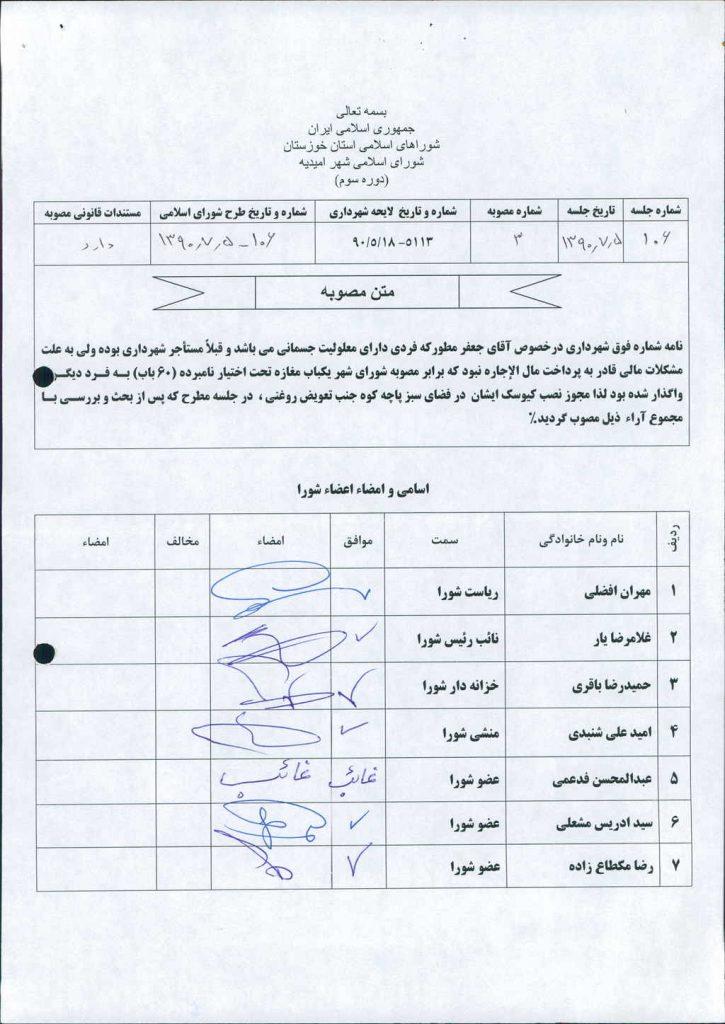 بسمه تعالی
جمهوری اسلامی ایران
شوراهای اسلامی استان خوزستان
شورای اسلامی شهر امیدیه
(دوره سوم)
شماره جلسه تاریخ جلسه شماره مصوبه شماره و تاریخ لایحه شهرداری شماره و تاریخ طرح شورای اسلامی مستندات قانونی مصوبه
۱۰۶ ۱۳۹۰٫۷٫۵ ۳ ۵۱۱۳-۹۰/۵/۱۸ ۱۰۶ - ۱۳۹۰٫۷٫۵ دارد
متن مصوبه
نامه شماره فوق شهرداری درخصوص آقای جعفر مطورکه فردی دارای معلولیت جسمانی می باشد و قبلاً مستأجر شهرداری بوده ولی به علت
مشکلات مالی قادر به پرداخت مال الإجاره نبود که برابر مصوبه شورای شهر یکباب مغازه تحت اختیار نامبرده (۶۰ باب) به فرد دیگر
واگذار شده بود لذا مجوز نصب کیوسک ایشان در فضای سبز پاچه کوه جنب تعویض روغنی ، در جلسه مطرح که پس از بحث و بررسی با
مجموع آراء ذیل مصوب گردید.٪
اسامی و امضاء اعضاء شورا
ردیف نام ونام خانوادگی سمت موافق امضاء مخالف امضاء
۱ مهران افضلی ریاست شورا
۲ غلامرضا یار نائب رئیس شورا
۳ حمیدرضا باقری خزانه دار شورا
۴ امید علی شنبدی منشی شورا
۵ عبدالمحسن فدعمی عضو شورا غائب غائب
۶ سید ادریس مشعلی عضو شورا
۷ رضا مکطاع زاده عضو شورا